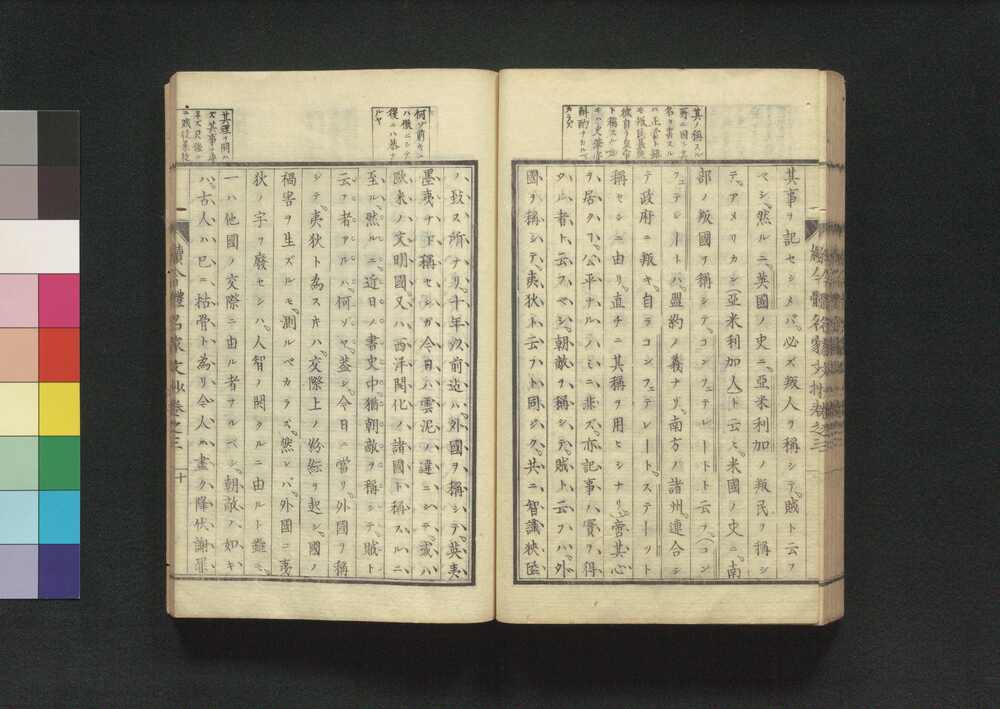 其事ヲ記セシメバ、必ズ叛人ヲ稱シテ、賊ト云フ
ベシ、然ルニ、英國ノ史ニ、亞米利加ノ叛民ヲ稱シ
テ、アメリカン（亞米利加人）ト云ヒ、米國ノ史ニ、南
部ノ叛國ヲ稱シテ、コンフェデレート ト云フ、（コン
フェデレートハ、盟約ノ義ナリ、南方ノ諸州、連合シ
テ政府ニ叛キ、自ラコンフェデレート、ステーツト
稱セシニ由リ、直チニ其稱ヲ用ヒシナリ）啻其心
ヲ居ク、公平ナルノミニ非ズ、亦記事ノ實ヲ得
タル者ト云フベシ、朝敵ヲ稱シテ、賊ト云フハ、外
國ヲ稱シテ、夷狄ト云フト同ジク、共ニ智識狹隘
ノ致ス所ナリ、十年以前迄ハ、外國ヲ稱シテ、英夷
墨夷ナド稱セシガ、今日ハ雲泥ノ違ニシテ、或ハ
歐米ノ文明國、又ハ西洋開化ノ諸國ト稱スルニ
至ル、然ルニ、近日ノ書史中、猶朝敵ヲ稱シテ、賊ト
云フ者アルハ、何ゾヤ、蓋シ、今日ニ當リ、外國ヲ稱
シテ、夷狄ト為ストキハ、交際上ノ紛紜ヲ起シ、國ノ
禍害ヲ生ズルモ、測ルベカラズ、然レバ、外國ニ夷
狄ノ字ヲ廢セシハ、人智ノ開クルニ由ルト雖ニ、
一ハ他國ノ交際ニ由ル者ナルベシ、朝敵ノ如キ
ハ、古人ハ已ニ枯骨ト為リ、今人ハ盡ク降伏謝罪
續今體名家文抄卷之三 十